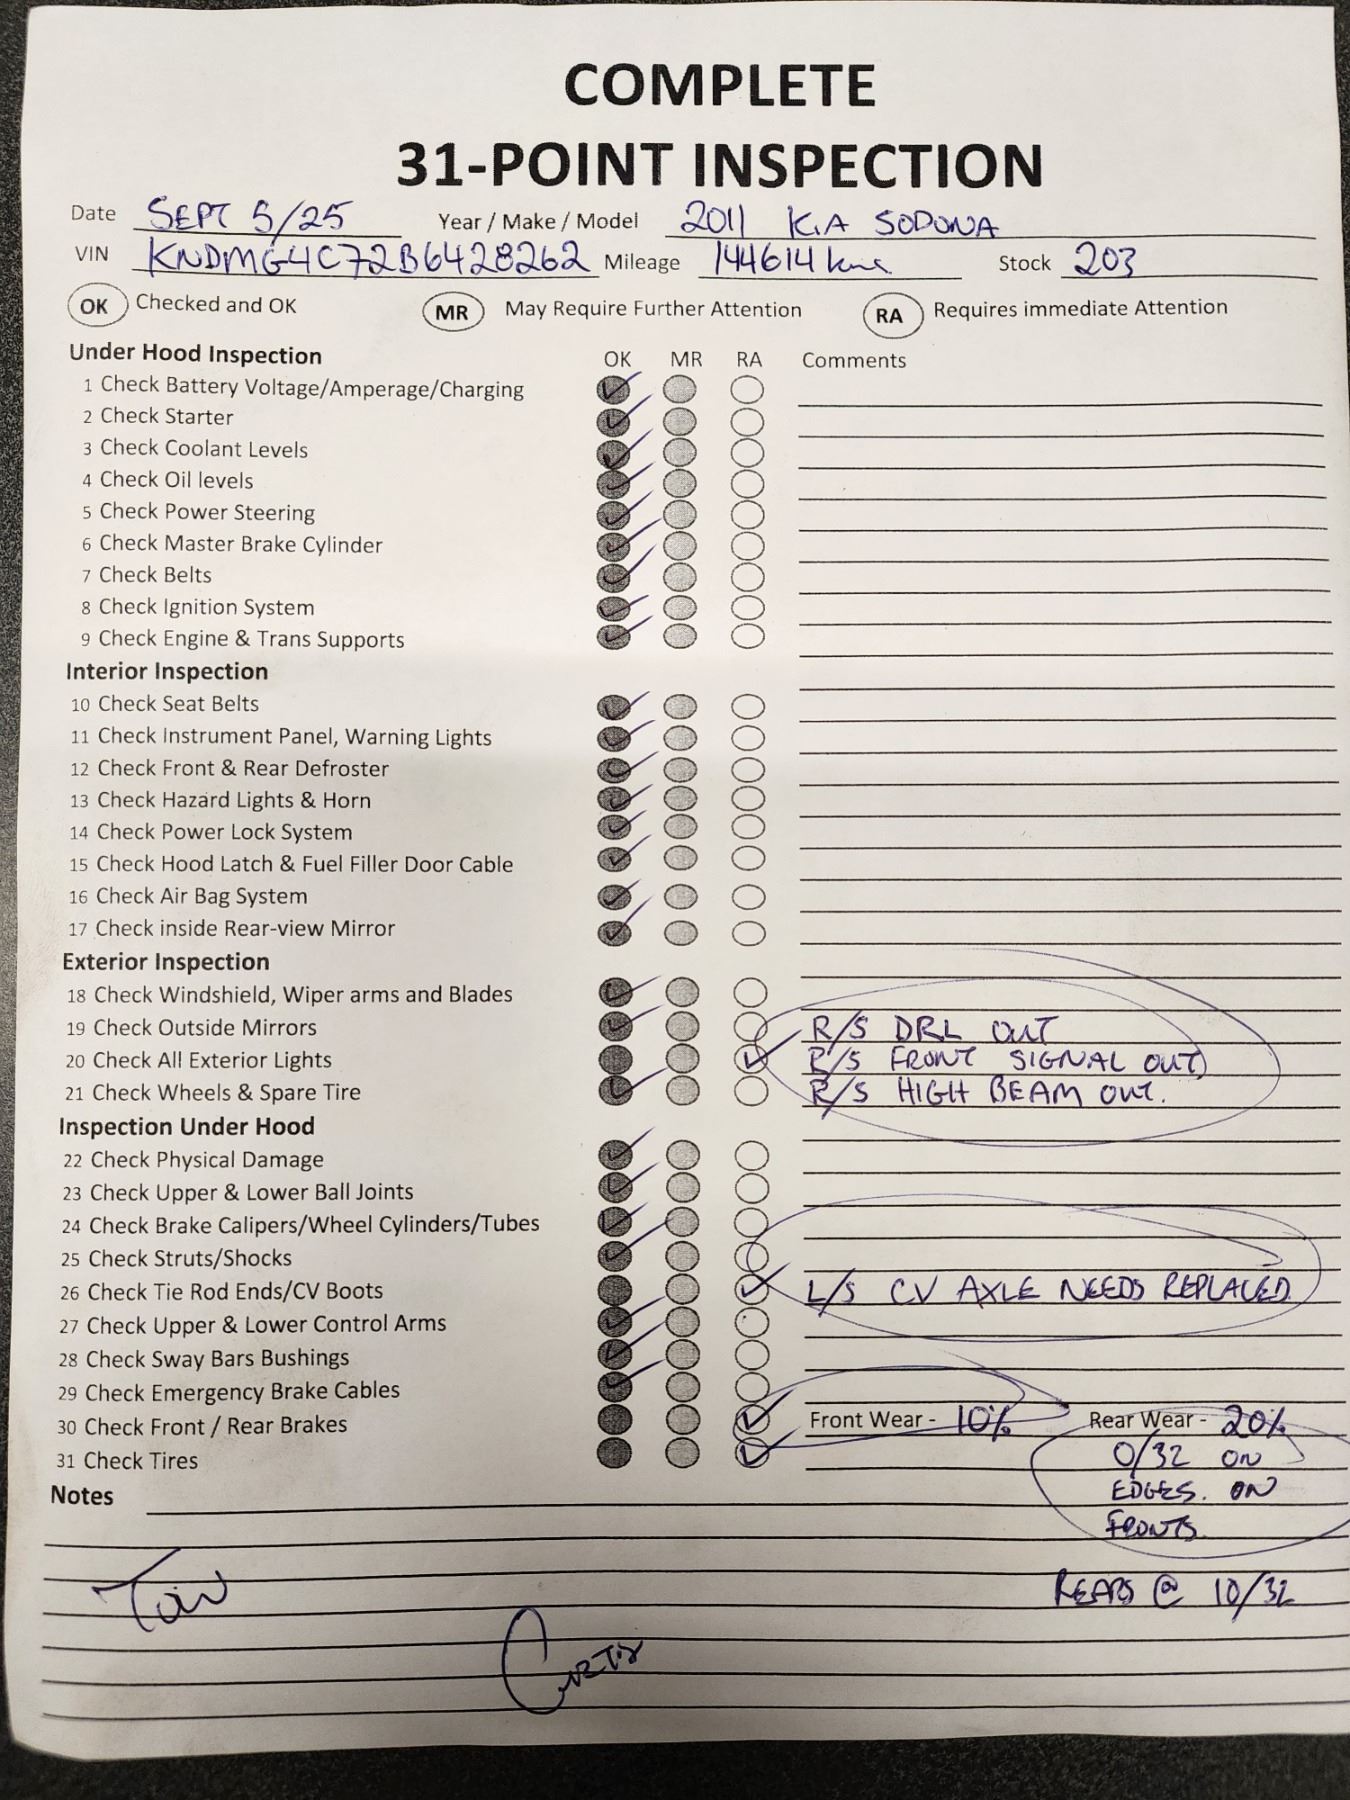 COMPLETE
31-POINT INSPECTION
Date SEPT 5/25 Year / Make / Model 2011 KIA SODONA
VIN KNDMG4C72B6428262 Mileage 144614 kms Stock 203
OK Checked and OK MR May Require Further Attention RA Requires immediate Attention
Under Hood Inspection OK MR RA Comments
1 Check Battery Voltage/Amperage/Charging
2 Check Starter
3 Check Coolant Levels
4 Check Oil levels
5 Check Power Steering
6 Check Master Brake Cylinder
7 Check Belts
8 Check Ignition System
9 Check Engine & Trans Supports
Interior Inspection
10 Check Seat Belts
11 Check Instrument Panel, Warning Lights
12 Check Front & Rear Defroster
13 Check Hazard Lights & Horn
14 Check Power Lock System
15 Check Hood Latch & Fuel Filler Door Cable
16 Check Air Bag System
17 Check inside Rear-view Mirror
Exterior Inspection
18 Check Windshield, Wiper arms and Blades
19 Check Outside Mirrors R/S DRL OUT
20 Check All Exterior Lights R/S FRONT SIGNAL OUT
21 Check Wheels & Spare Tire R/S HIGH BEAM OUT.
Inspection Under Hood
22 Check Physical Damage
23 Check Upper & Lower Ball Joints
24 Check Brake Calipers/Wheel Cylinders/Tubes
25 Check Struts/Shocks
26 Check Tie Rod Ends/CV Boots L/S CV AXLE NEEDS REPLACED.
27 Check Upper & Lower Control Arms
28 Check Sway Bars Bushings
29 Check Emergency Brake Cables
30 Check Front / Rear Brakes Front Wear - 10% Rear Wear - 20%
31 Check Tires 0/32 ON
Notes EDGES. ON
FRONTS.
REARS @ 10/32
Curtis